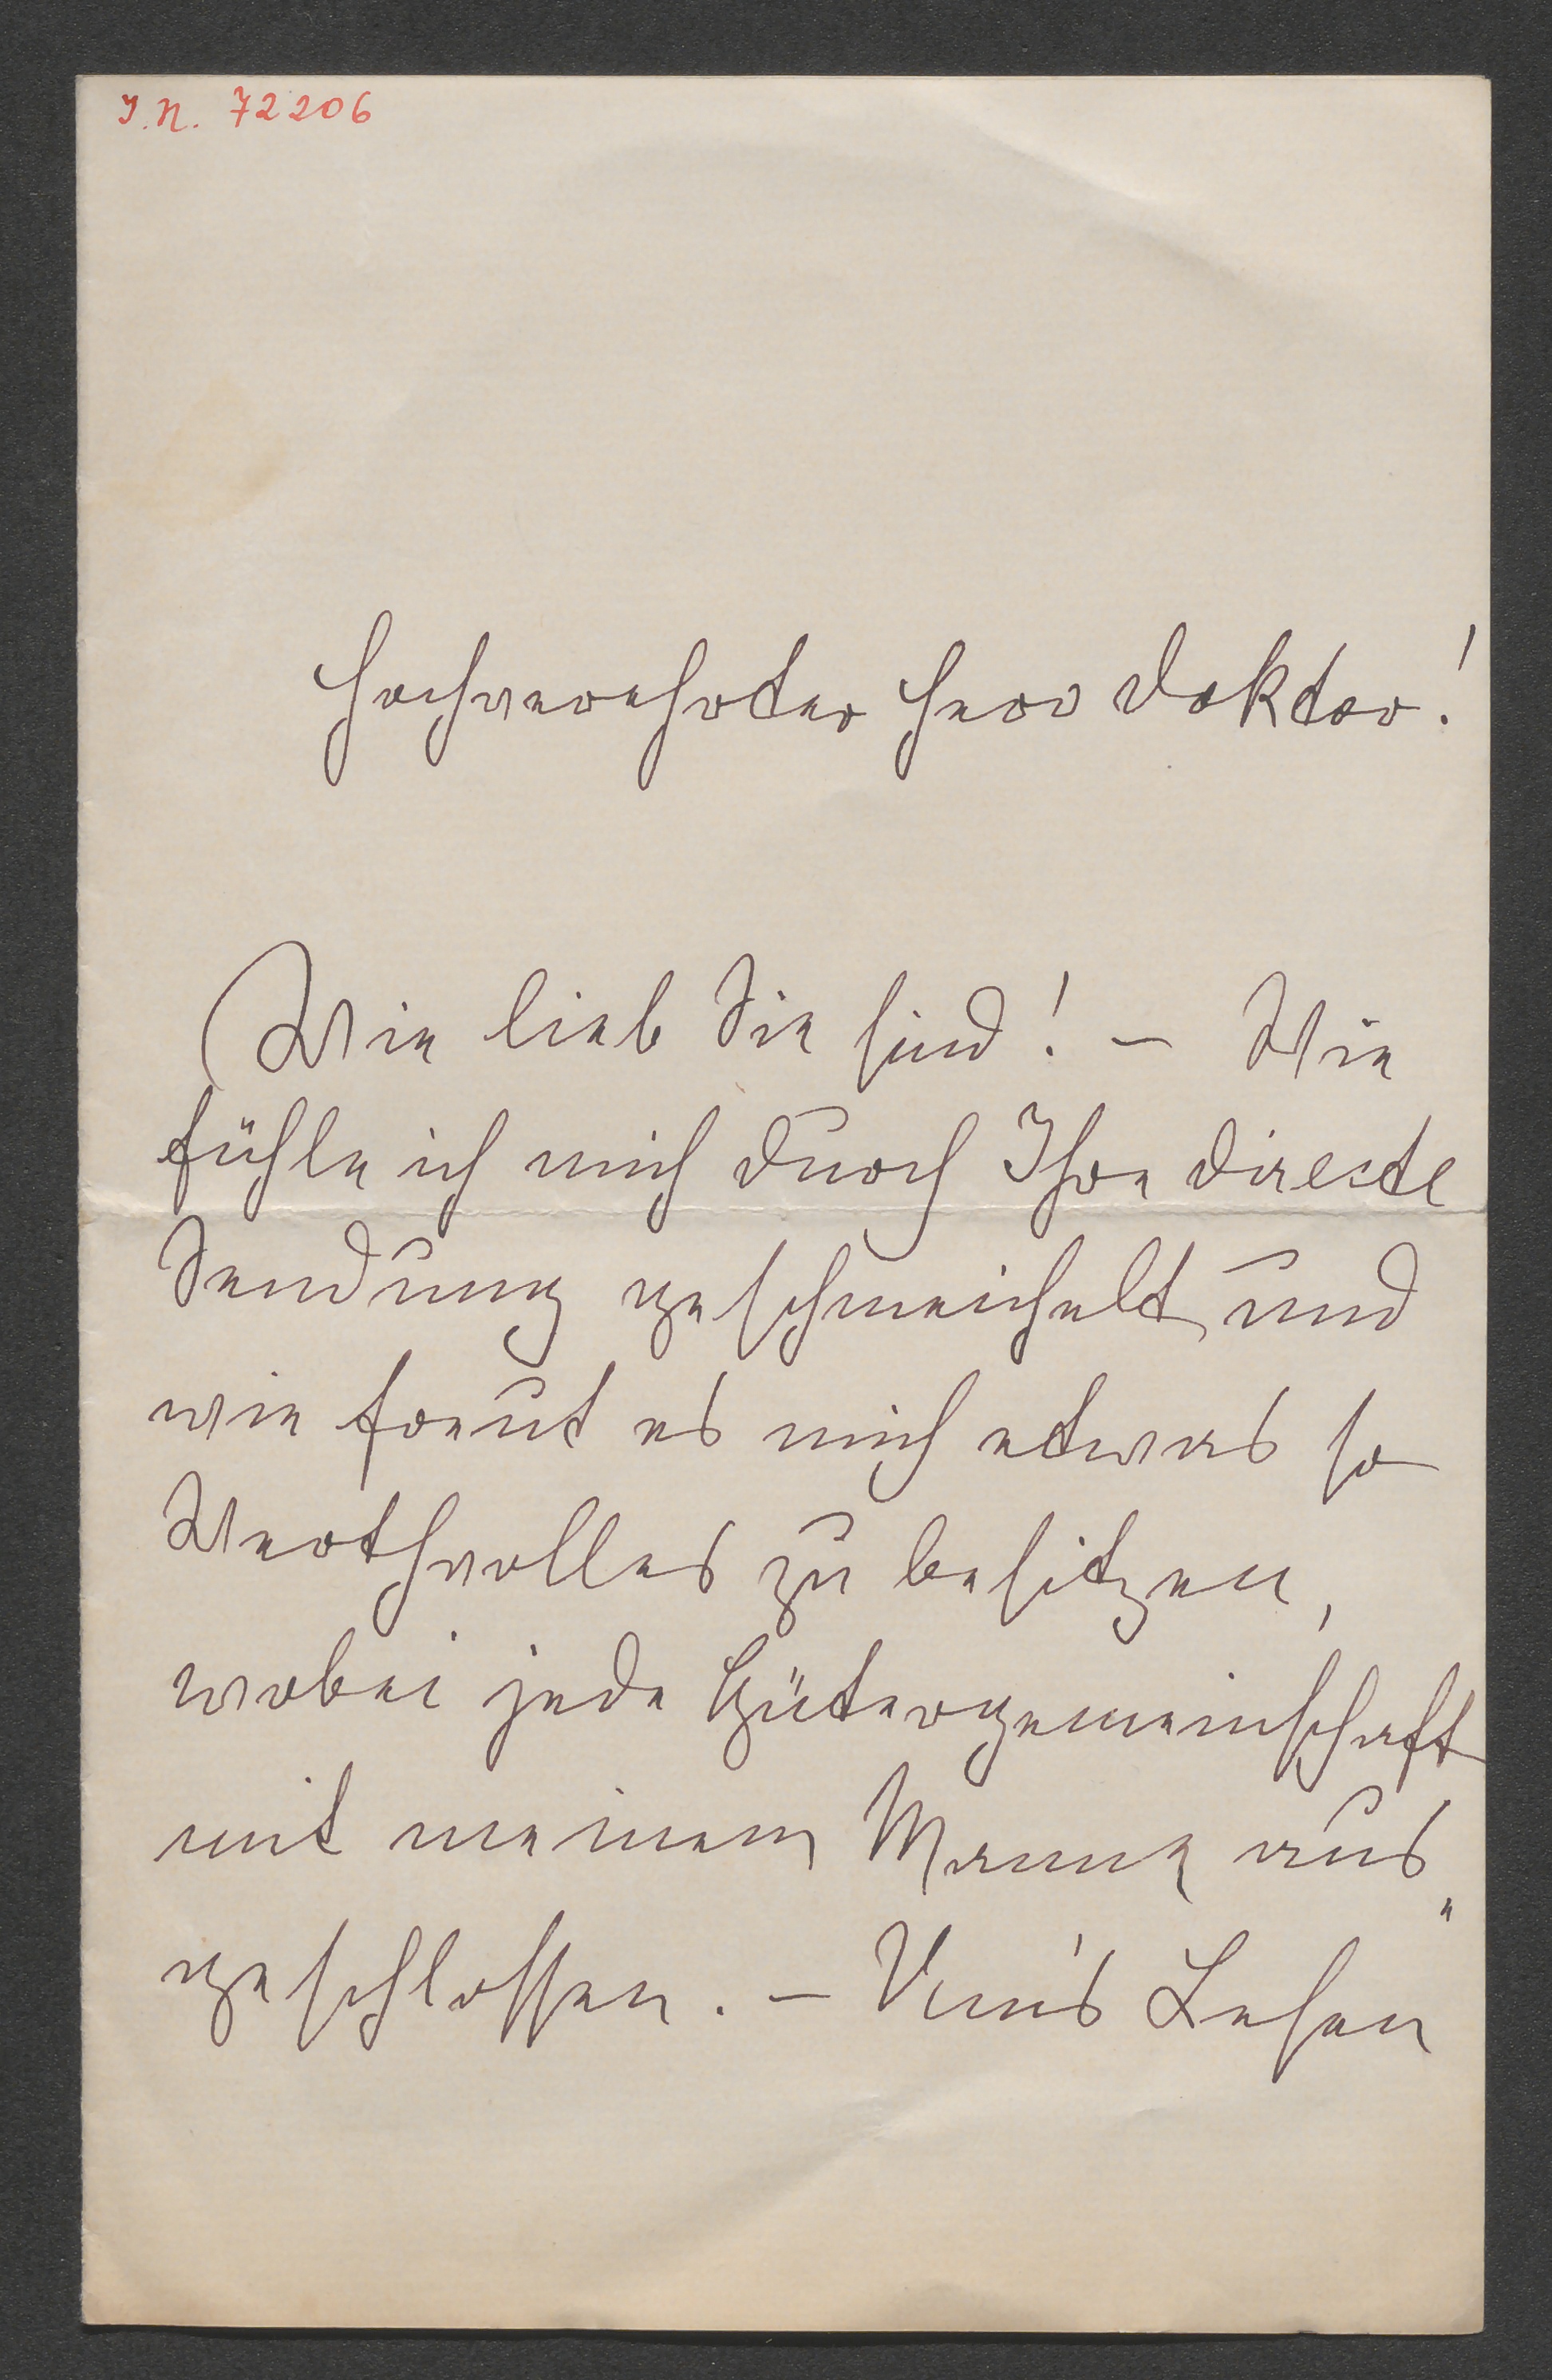 I.N. 72206
Hochverehrter Herr Doktor!
Wie lieb Sie sind! – Wie
fühle ich mich durch Ihre directe
Sendung geschmeichelt und
wie freut es mich etwas so
Werthvolles zu besitzen,
wobei jede Gütergemeinschaft
mit meinem Manne aus„
geschlossen. – Um's Lesen